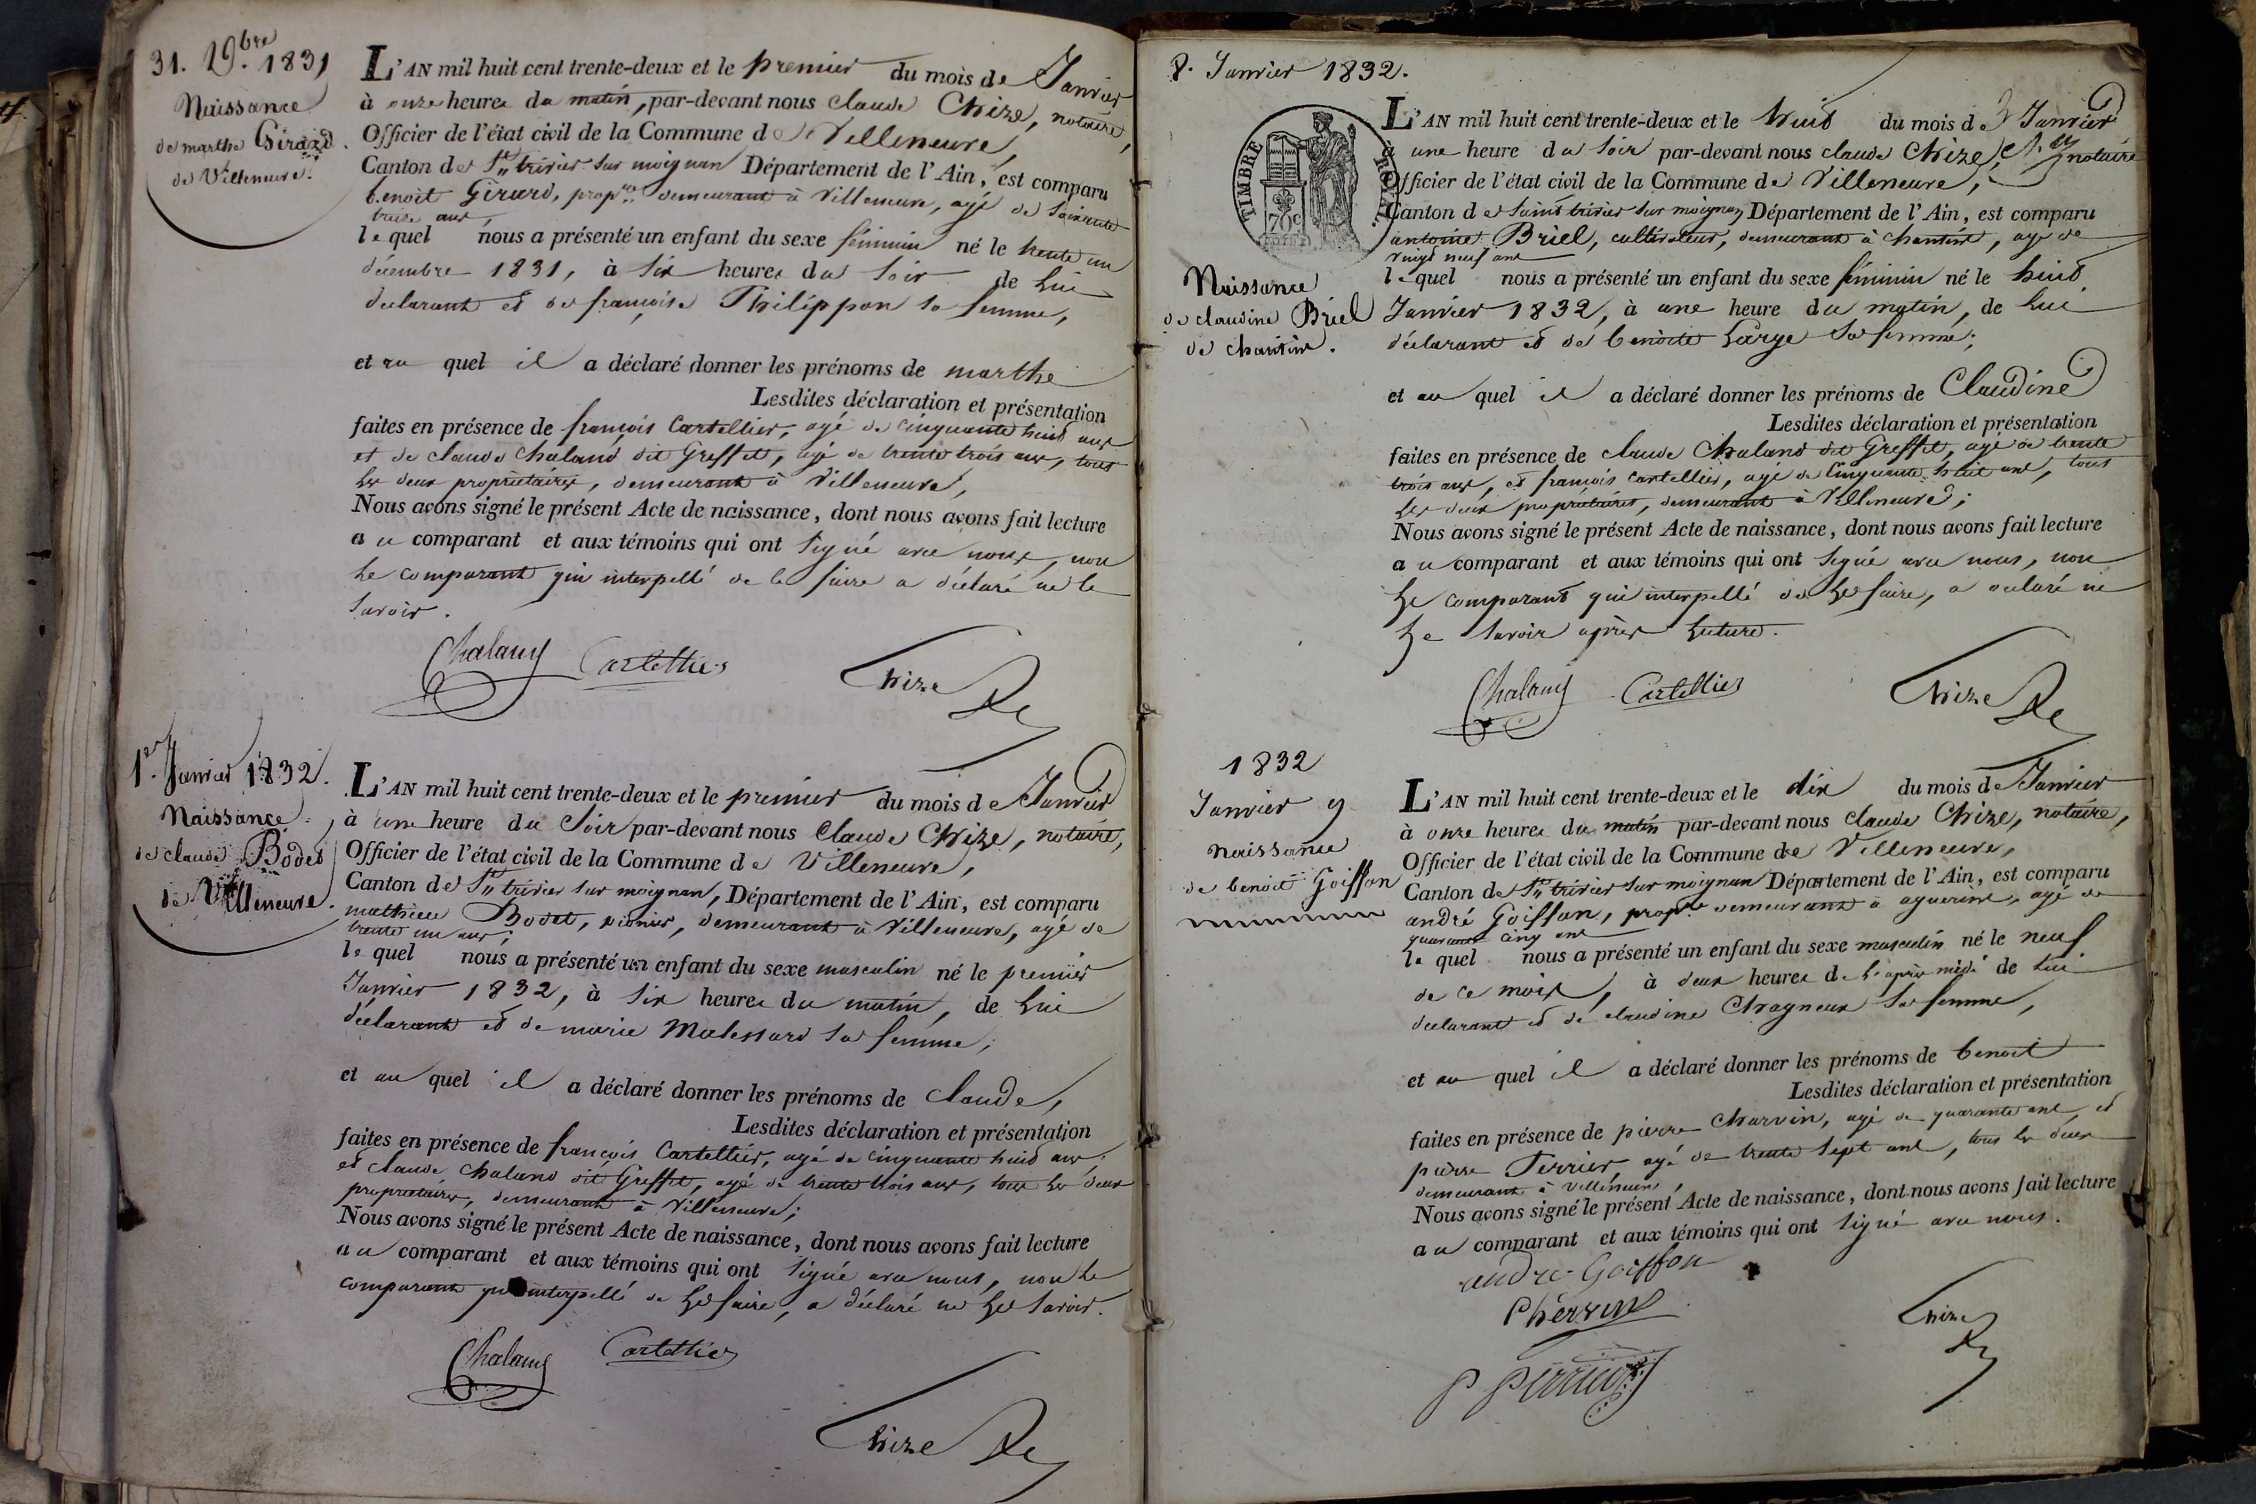 31. Xbre 1831
Naissance
de marthe Girard
de Villeneuve.
L'AN mil huit cent trente-deux et le premier du mois de Janvier
à onze heures du matin, par-devant nous Claude Chize, notaire,
Officier de l'état civil de la Commune de Villeneuve,
Canton de St trivier sur moignan Département de l'Ain, est comparu
benoit Girard, propre demeurant à Villeneuve, agé de soixante
treize ans,
lequel nous a présenté un enfant du sexe féminin né le trente un
décembre 1831, à six heures du soir de lui
déclarant et de françoise Philippon sa femme,
et au quel il a déclaré donner les prénoms de marthe
Lesdites déclaration et présentation
faites en présence de françois Cartellier, agé de cinquante huit ans
et de claude Chaland dit Greffet, agé de trente trois ans, tous
les deux propriétaires, demeurant à Villeneuve,
Nous avons signé le présent Acte de naissance, dont nous avons fait lecture
au comparant et aux témoins qui ont signé avec nous, non
le comparant qui interpellé de le faire a déclaré ne le
savoir.
Chaland Cartellier Chize
1er Janvier 1832.
Naissance
de claude Bodet
de Villeneuve.
L'AN mil huit cent trente-deux et le premier du mois de Janvier
à une heure du soir par-devant nous Claude Chize, notaire,
Officier de l'état civil de la Commune de Villeneuve,
Canton de St trivier sur moignan, Département de l'Ain, est comparu
mathieu Bodet, demeurant à Villeneuve, agé de
trente un ans;
lequel nous a présenté un enfant du sexe masculin né le premier
Janvier 1832, à six heures du matin, de lui
déclarant et de marie Malessard sa femme,
et au quel il a déclaré donner les prénoms de claude,
Lesdites déclaration et présentation
faites en présence de françois Cartellier, agé de cinquante huit ans,
et claude Chaland dit Greffet, agé de trente trois ans, tous les deux
propriétaires, demeurant à Villeneuve;
Nous avons signé le présent Acte de naissance, dont nous avons fait lecture
au comparant et aux témoins qui ont signé avec nous, non le
comparant qui interpellé de le faire, a déclaré ne le savoir.
Chaland Cartellier
Chize
8. Janvier 1832.
TIMBRE ROYAL
70c
Naissance
de claudine Briel
de chantin.
L'AN mil huit cent trente-deux et le huit du mois de Janvier
à une heure du soir par-devant nous claude Chize, notaire
Officier de l'état civil de la Commune de Villeneuve,
Canton de saint trivier sur moignan Département de l'Ain, est comparu
antoine Briel, cultivateur, demeurant à chantin, agé de
vingt neuf ans
lequel nous a présenté un enfant du sexe féminin né le huit
Janvier 1832, à une heure du matin, de lui
déclarant et de benoite Large sa femme;
et au quel il a déclaré donner les prénoms de Claudine
Lesdites déclaration et présentation
faites en présence de claude Chaland dit Greffet, agé de trente
trois ans, et françois Cartellier, agé de cinquante huit ans, tous
les deux propriétaires, demeurant à Villeneuve;
Nous avons signé le présent Acte de naissance, dont nous avons fait lecture
au comparant et aux témoins qui ont signé avec nous, non
le comparant qui interpellé de le faire, a déclaré ne
le savoir après lecture.
Chaland Cartellier Chize
1832
Janvier 9
naissance
de benoit Goiffon
L'AN mil huit cent trente-deux et le dix du mois de Janvier
à onze heures du matin par-devant nous claude Chize, notaire,
Officier de l'état civil de la Commune de Villeneuve,
Canton de St trivier sur moignan Département de l'Ain, est comparu
andré Goiffon, propre demeurant à aguerins, agé de
quarante cinq ans
lequel nous a présenté un enfant du sexe masculin né le neuf
de ce mois, à deux heures de l'après midi de lui
déclarant et de claudine Chagneux sa femme,
et au quel il a déclaré donner les prénoms de benoit
Lesdites déclaration et présentation
faites en présence de pierre Charvin, agé de quarante ans, et
pierre Perrier, agé de trente sept ans, tous les deux
demeurant à Villeneuve,
Nous avons signé le présent Acte de naissance, dont nous avons fait lecture
au comparant et aux témoins qui ont signé avec nous.
andré Goiffon
Chervin
Chize
P Perrier